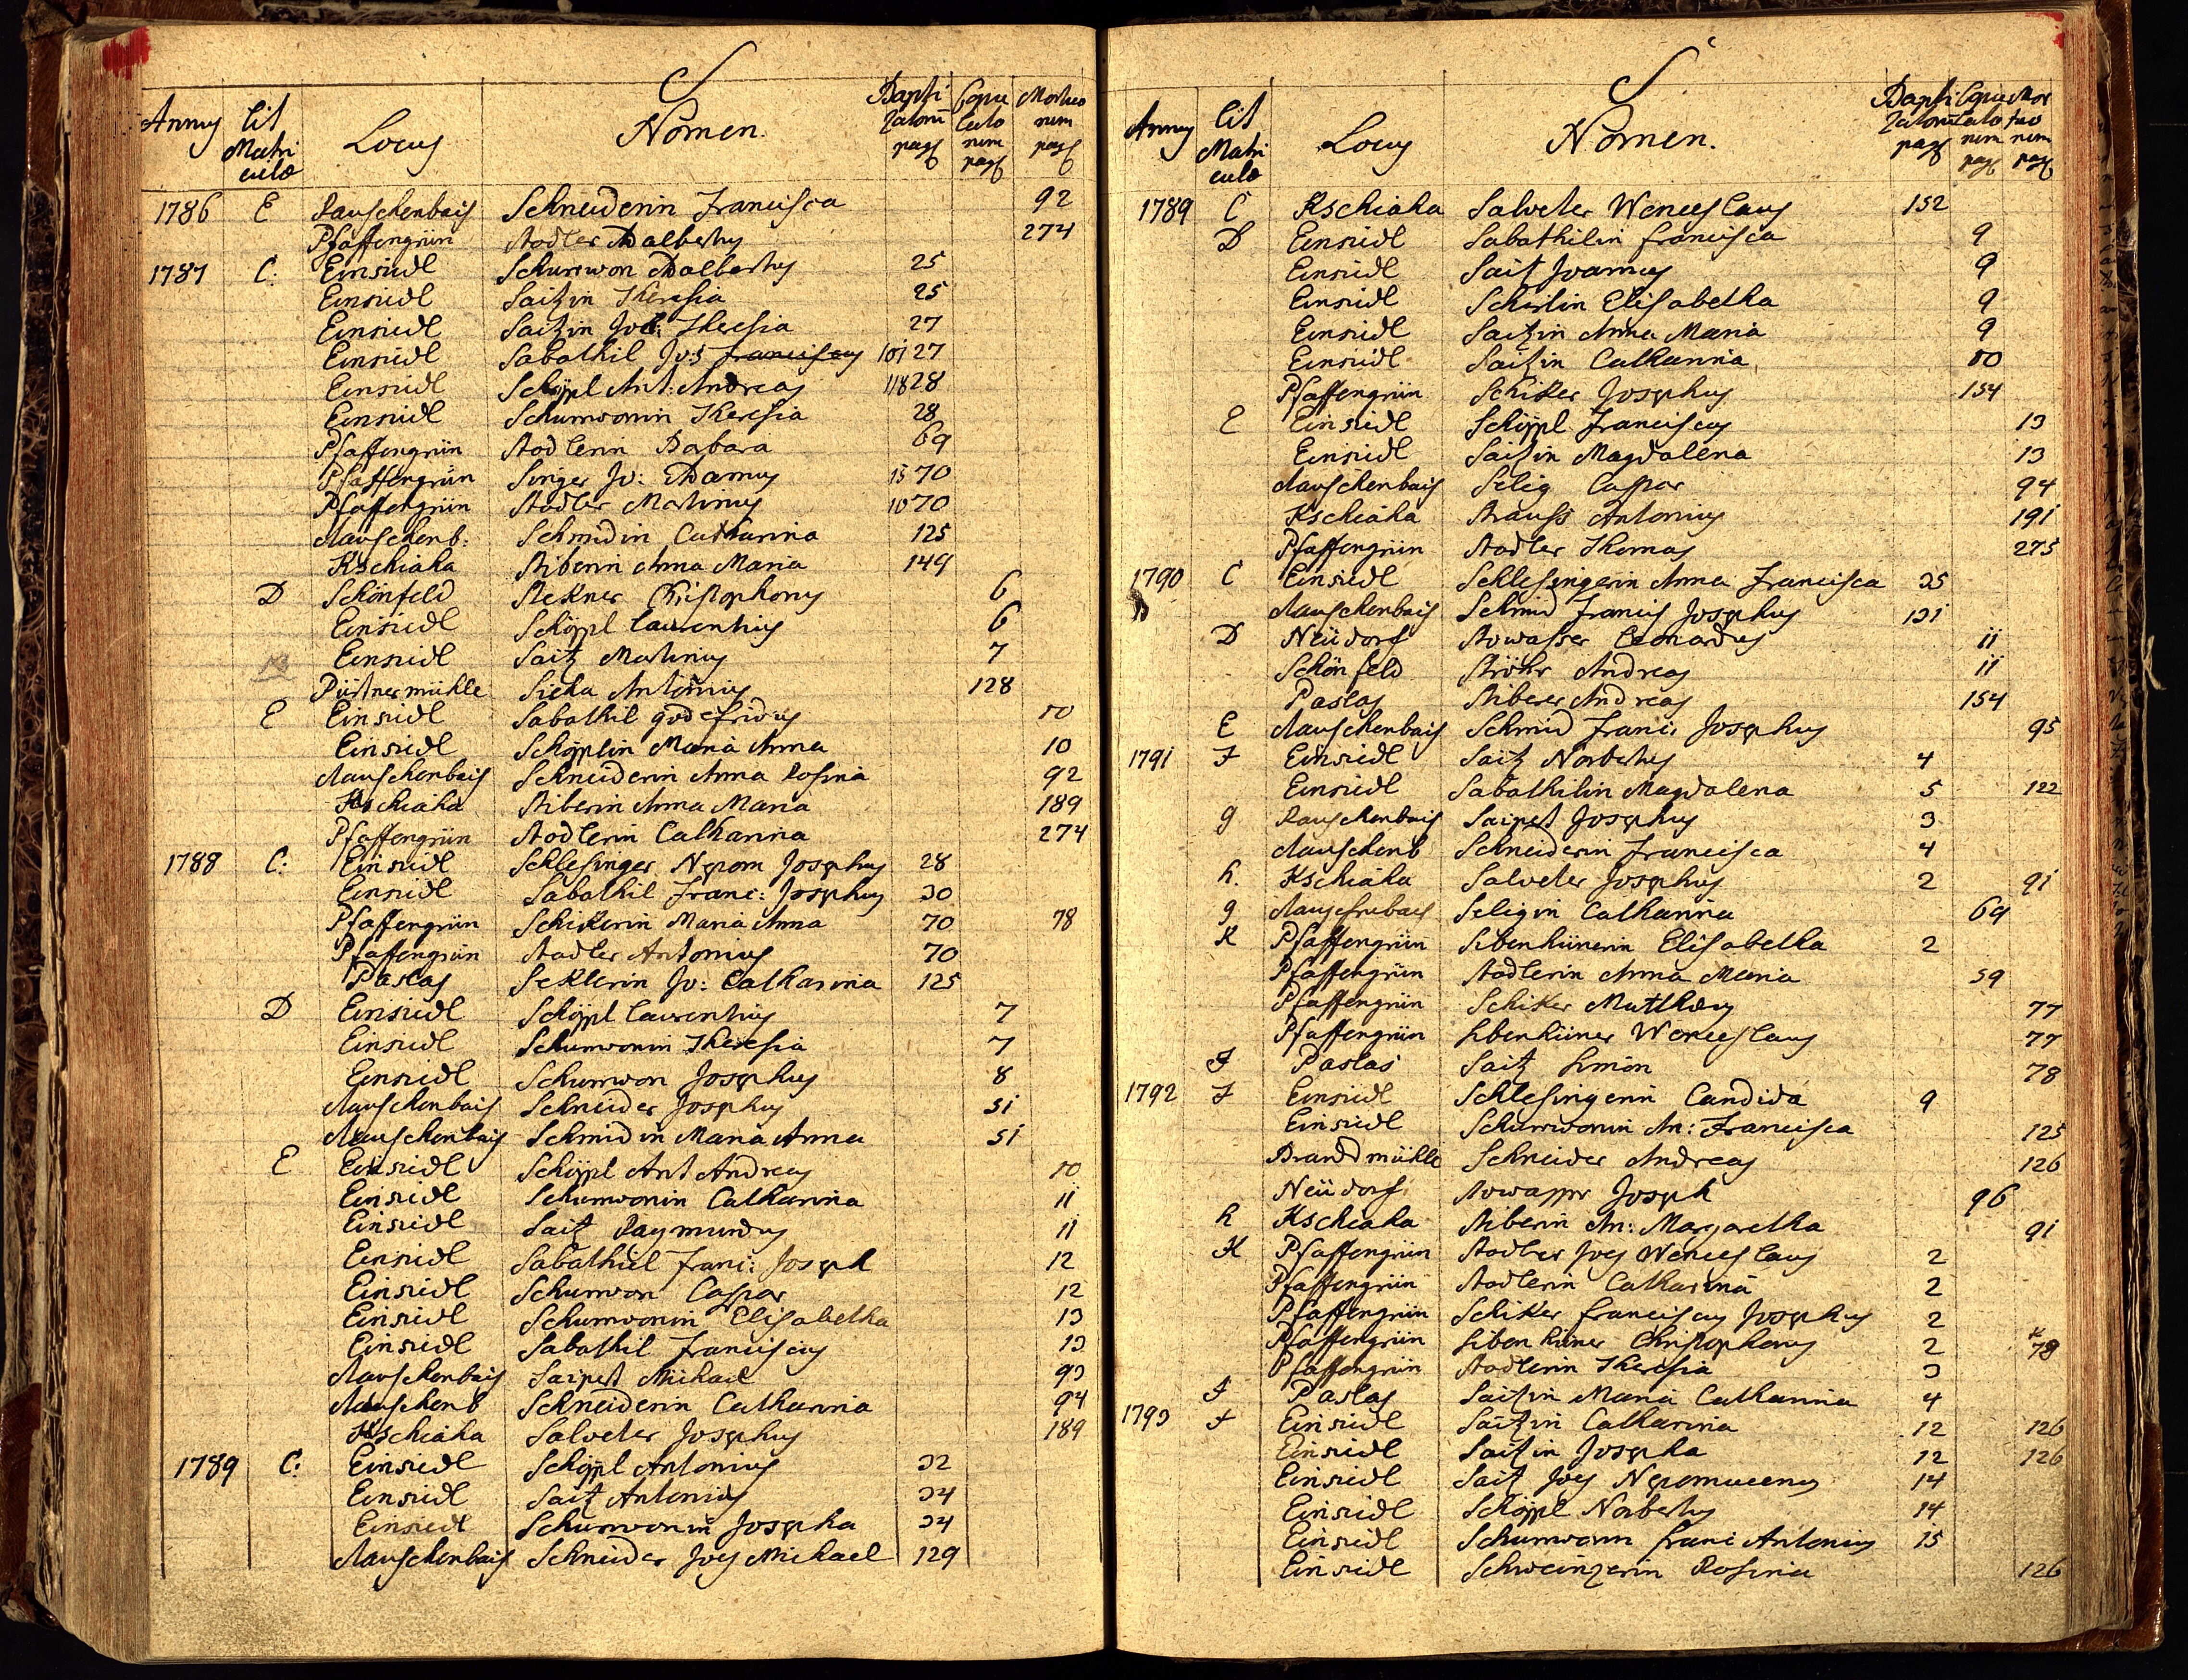 S
Annus Lit Matri culæ Locus Nomen. Bapti zatorū pag Copu lato rum pag Mortuo rum pag
1786 E Rauschenbais Schneiderin Francisca 92
Pfaffengrün Stadler Adalbertus 274
1787 C: Einsiedl Schurwon Adalbertus 25
Einsiedl Saitzin Theresia 25
Einsiedl Saitzin Theresia 27
Einsiedl Sabathil Jos Franciscus 101 27
Einsiedl Schöppl Ant: Andreas 118 28
Einsiedl Schurwonin Theresia 28
Pfaffengrün Stadlerin Barbara 69
Pfaffengrün Singer Jo: Adamus 15 70
Pfaffengrün Stadler Martinus 10 70
Rauschenb: Schmidin Catharina 125
Kschiaha Stiberin Anna Maria 149
D Schönfeld Stekner Christophorus 6
Einsiedl Schöppl Laurentius 6
Einsiedl Saitz Martinus 7
Püstnermühle Sicha Antonius 128
E Einsiedl Sabathil godefridus 10
Einsiedl Schöpplin Maria Anna 10
Rauschenbais Schneiderin Anna Rosina 92
Kschiaha Stiberin Anna Maria 189
Pfaffengrün Stadlerin Catharina 274
1788 C: Einsiedl Schlesinger Nepom Josephus 28
Einsiedl Sabathil Franc: Josephus 30
Pfaffengrün Schikerin Maria Anna 70 78
Pfaffengrün Stadler Antonius 70
Paslas Seklerin Jo: Catharina 125
D Einsiedl Schöppl Laurentius 7
Einsiedl Schurwonin Theresia 7
Einsiedl Schurwon Josephus 8
Rauschenbais Schneider Josephus 51
Rauschenbais Schmidin Maria Anna 51
E Einsiedl Schöppl Ant Andreas 10
Einsiedl Schurwonin Catharina 11
Einsiedl Saitz Raymundus 11
Einsiedl Sabathiel Franc: Joseph 12
Einsiedl Schurwon Caspar 12
Einsiedl Schurwonin Elisabetha 13
Einsiedl Sabathil Franciscus 13
Rauschenbais Saipert Michael 93
Rauschenb Schneiderin Catharina 94
Kschiaha Salveter Josephus 189
1789 C: Einsiedl Schöppl Antonius 32
Einsiedl Saitz Antonius 34
Einsiedl Schurwonin Josepha 34
Rauschenbais Schneider Joes Michael 129
S
Annus Lit Matri culæ Locus Nomen. Bapti zatorū pag Copu lato rum pag Mor tuo rum pag
1789 C Kschiaha Salveter Wenceslaus 152
D Einsiedl Sabathilin francisca 9
Einsiedl Saitz Joannes 9
Einsiedl Elisabetha 9
Einsiedl Saitzin Anna Maria 9
Einsiedl Saitzin Catharina 10
Pfaffengrün Schiker Josephus 154
E Einsiedl Schöppl Franciscus 13
Einsiedl Saitzin Magdalena 13
Rauschenbais Selig Caspar 94
Kschiaha Strauss Antonius 191
Pfaffengrün Stadler Thomas 275
1790 C Einsiedl Schlesingerin Anna Francisca 35
Rauschenbais Schmid Francis Josephus 131
D Neüdorf Stowasser Leonardus 11
Schönfeld Ströhr Andreas 11
Paslas Stiberer Andreas 154
E Rauschenbais Schmid Franc: Josephus 95
1791 F Einsiedl Saitz Norbertus 4
Einsiedl Sabathilin Magdalena 5 122
g Rauschenbais Saipert Josephus 3
Rauschenb Schneiderin Francisca 4
h. Kschiaha Salveter Josephus 2 91
g Seligin Catharina 69
K Pfaffengrün Sibenhünerin Elisabetha 2
Pfaffengrün Stadlerin Anna Maria 59
Pfaffengrün Schiker Matthæus 77
Pfaffengrün Sibenhüner Wenceslaus 77
I Paslas Saitz Simon 78
1792 F Einsiedl Schlesingerin Candida 9
Einsiedl Schurwonin An: Francisca 125
Brandmühle Schneider Andreas 126
Neüdorf Stowasser Joseph 96
h Kschiaha Stiberin An: Margaretha 91
K Pfaffengrün Stadler Joes Wenceslaus 2
Pfaffengrün Stadlerin Catharina 2
Pfaffengrün Schiker franciscus Josephus 2
Pfaffengrün Sibenhüner Christophorus 2 78
Pfaffengrün Stadlerin Theresia 3
I Paslas Saitzin Maria Catharina 4
1793 F Einsiedl Saitzin Catharina 12 126
Einsiedl Saitzin Josepha 12 126
Einsiedl Saitz Joes Nepomucenus 14
Einsiedl Schöppl Norbertus 14
Einsiedl Schurwonn franc Antonius 15
Einsiedl Schweinzerin Rosina 126